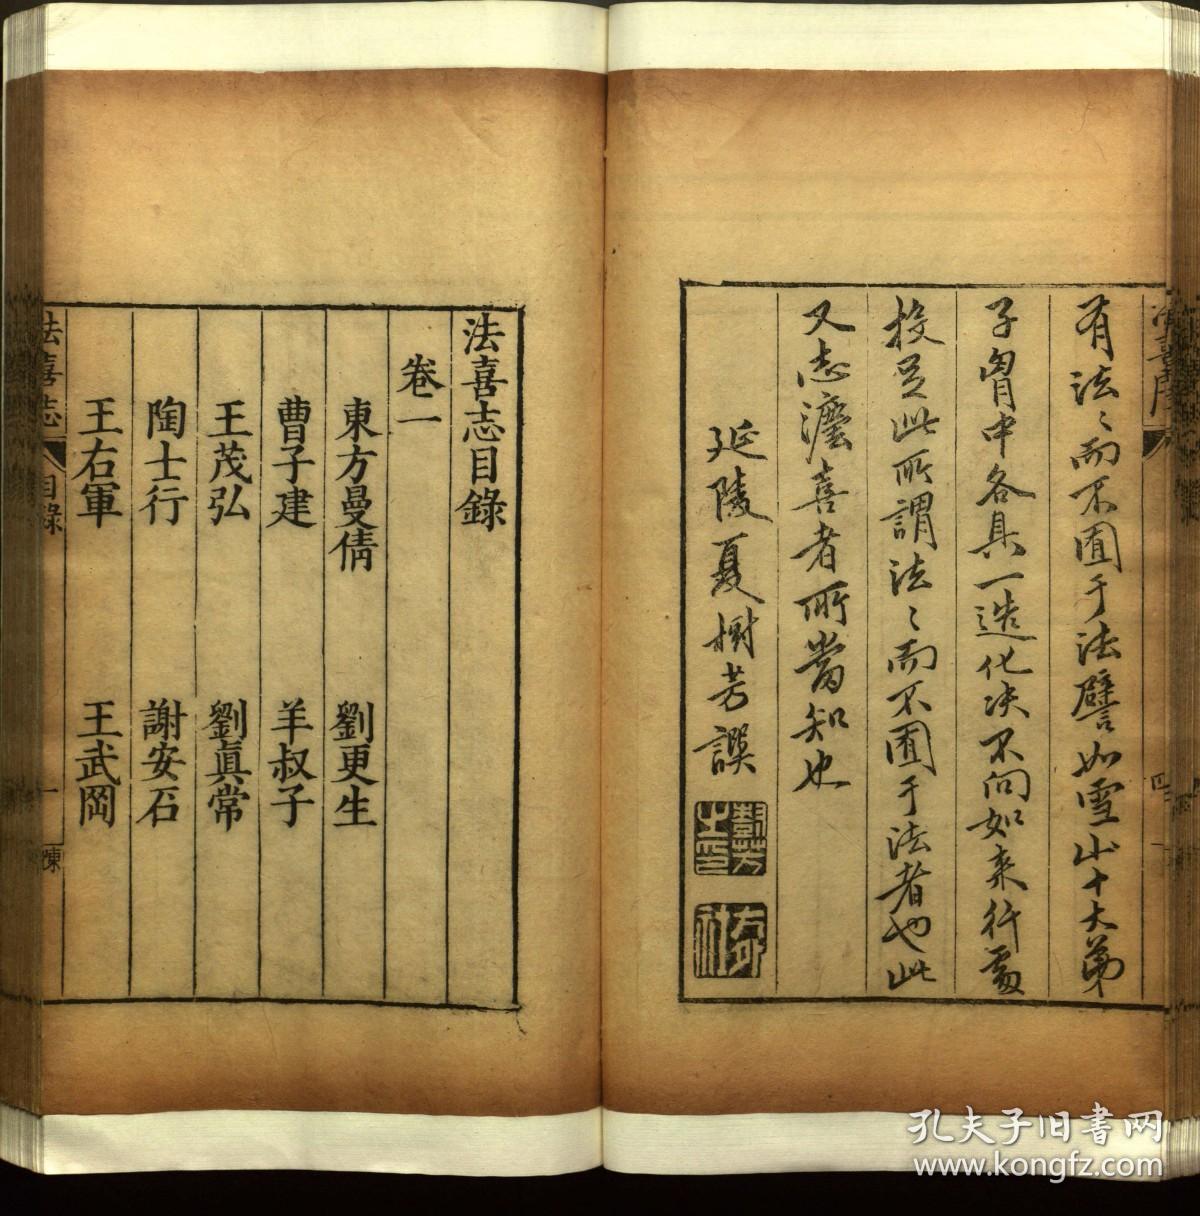 有法〻而不囿于法譬如雪山十大弟
子胷中各具一造化决不向如来行處
投足此所謂法〻而不囿于法者也此
又志瀍喜者所當知也
延陵夏樹芳譔
法喜志目錄
卷一
東方曼倩 劉更生
曹子建 羊叔子
王茂弘 劉眞常
陶士行 謝安石
王右軍 王武岡
法喜志 目錄 一 陳
孔夫子旧书网
www.kongfz.com